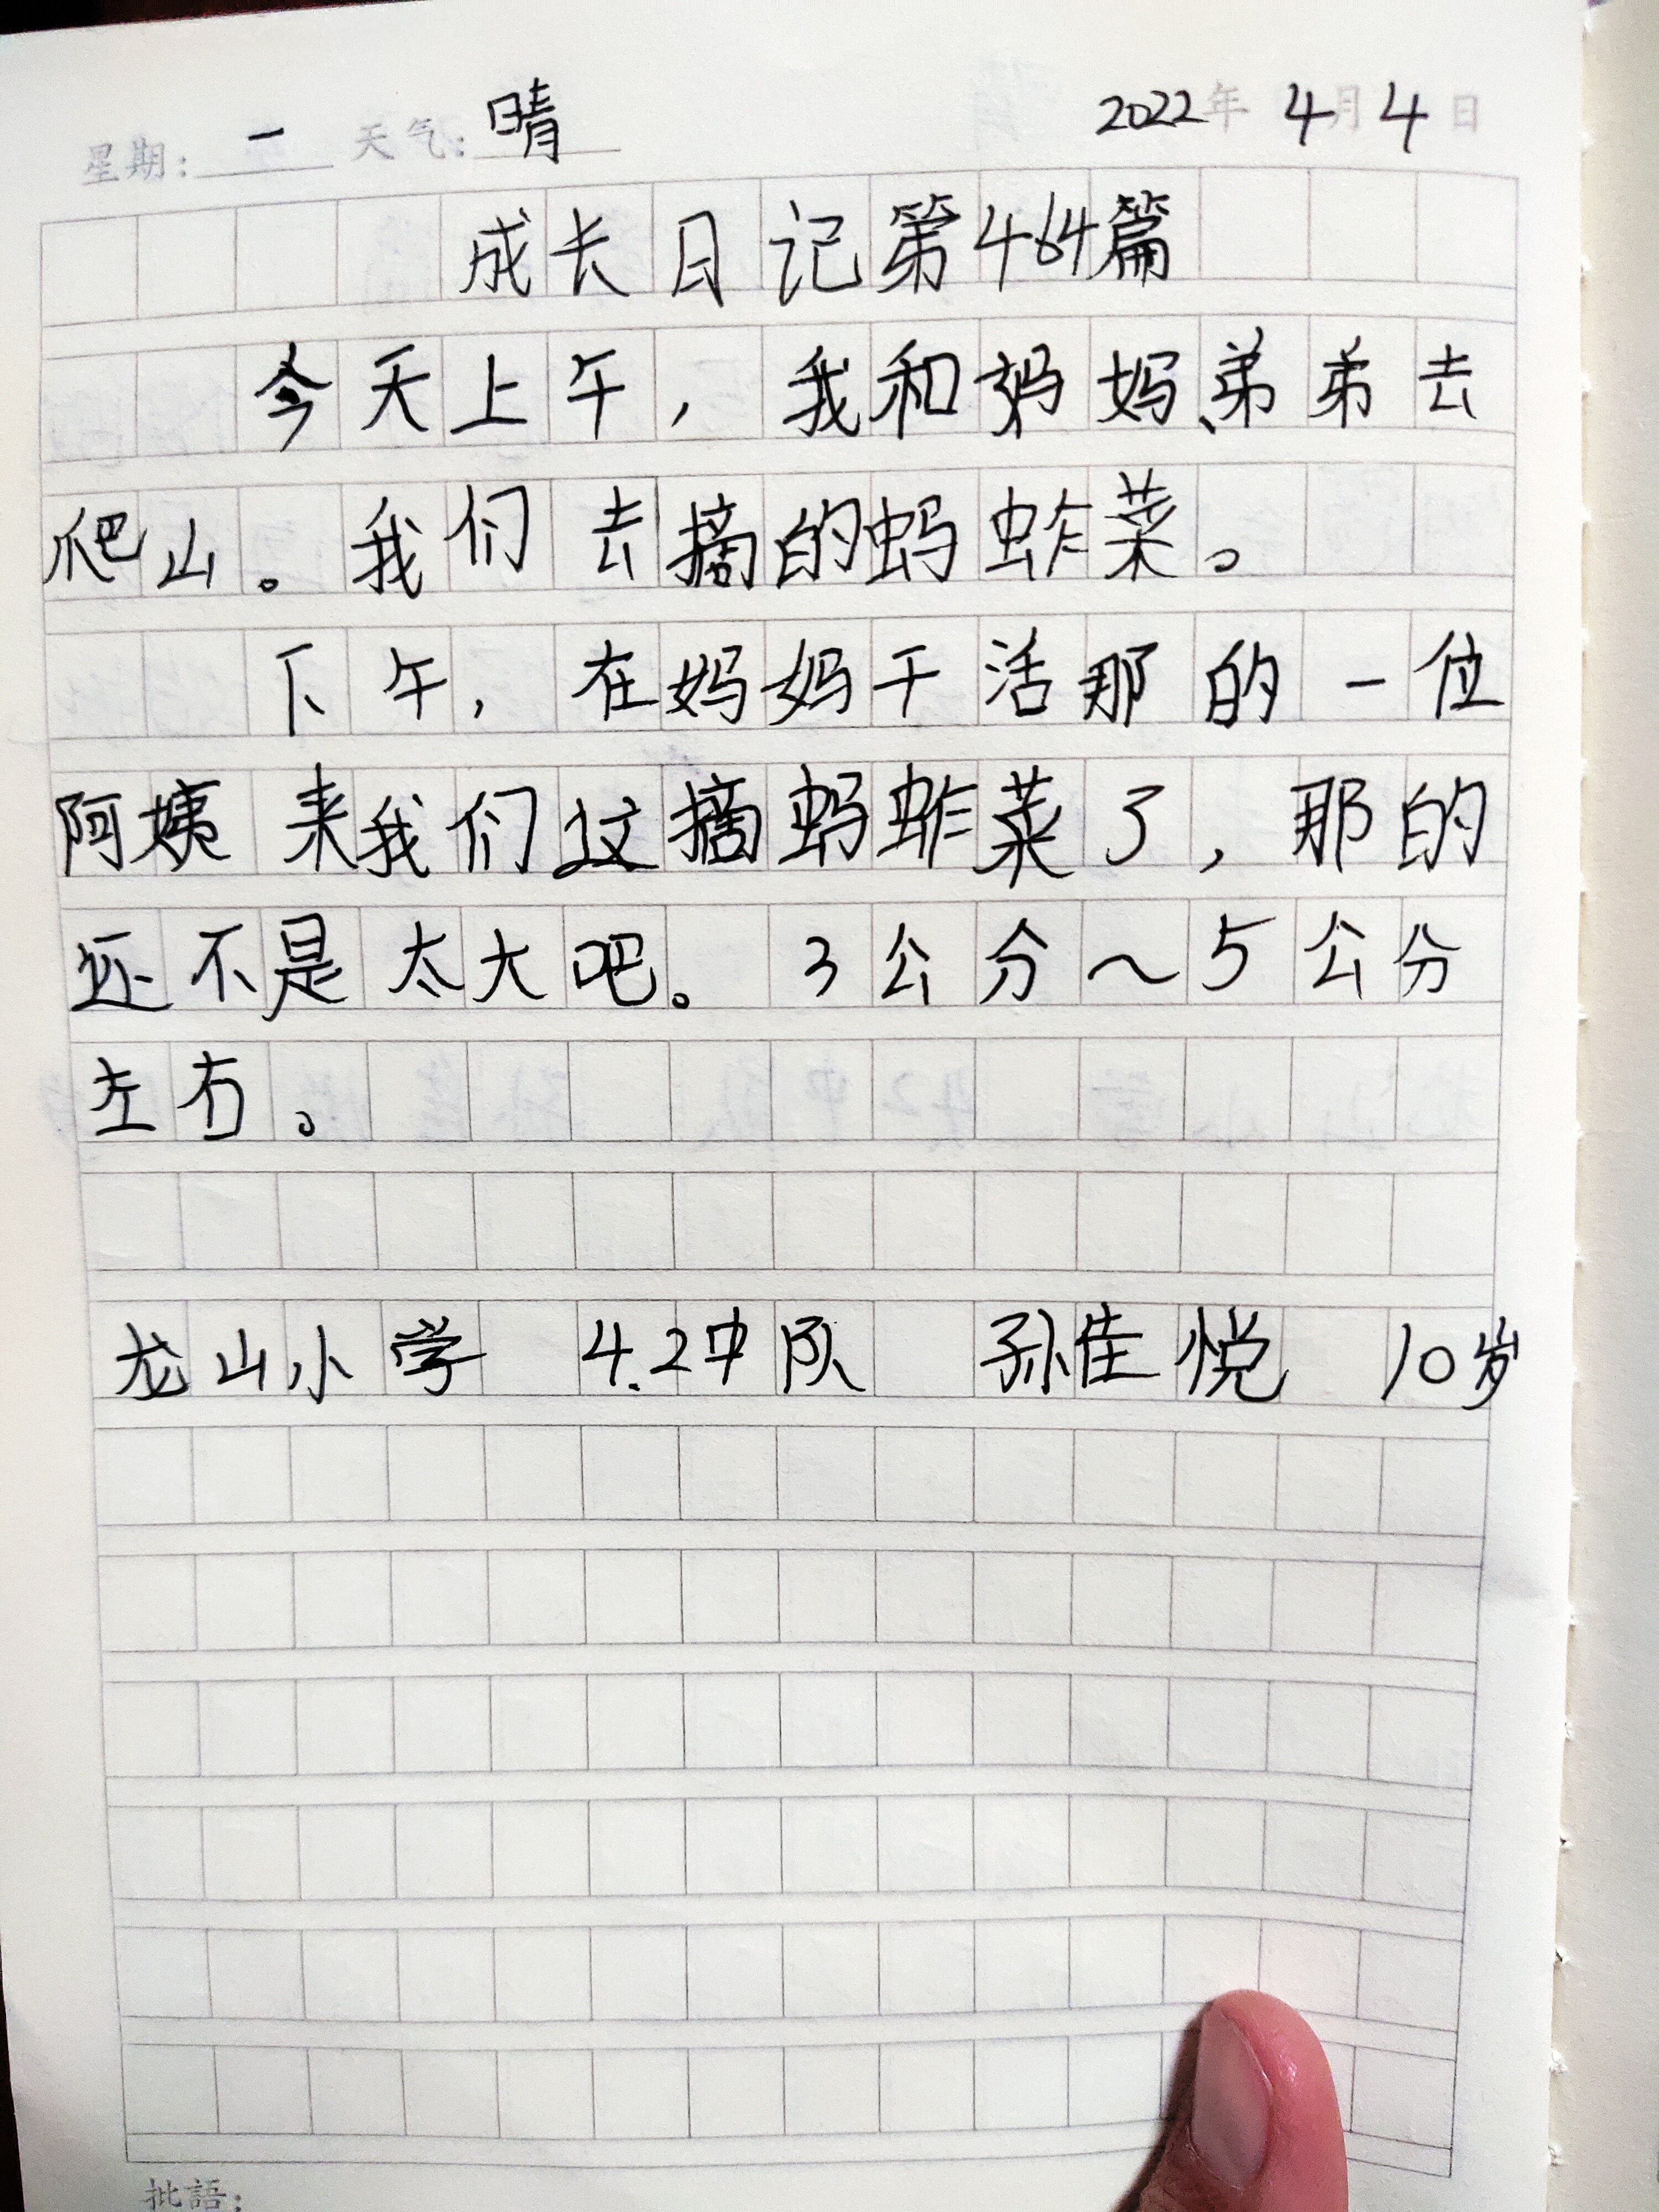 星期: 一 天气: 晴 2022年 4月4日
成长日记第464篇
今天上午，我和妈妈、弟弟去
爬山。我们去摘的蚂蚱菜。
下午，在妈妈干活那的一位
阿姨来我们这摘蚂蚱菜了，那的
还不是太大吧。3公分～5公分
左右。
龙山小学 4.2中队 孙佳悦 10岁
批語: